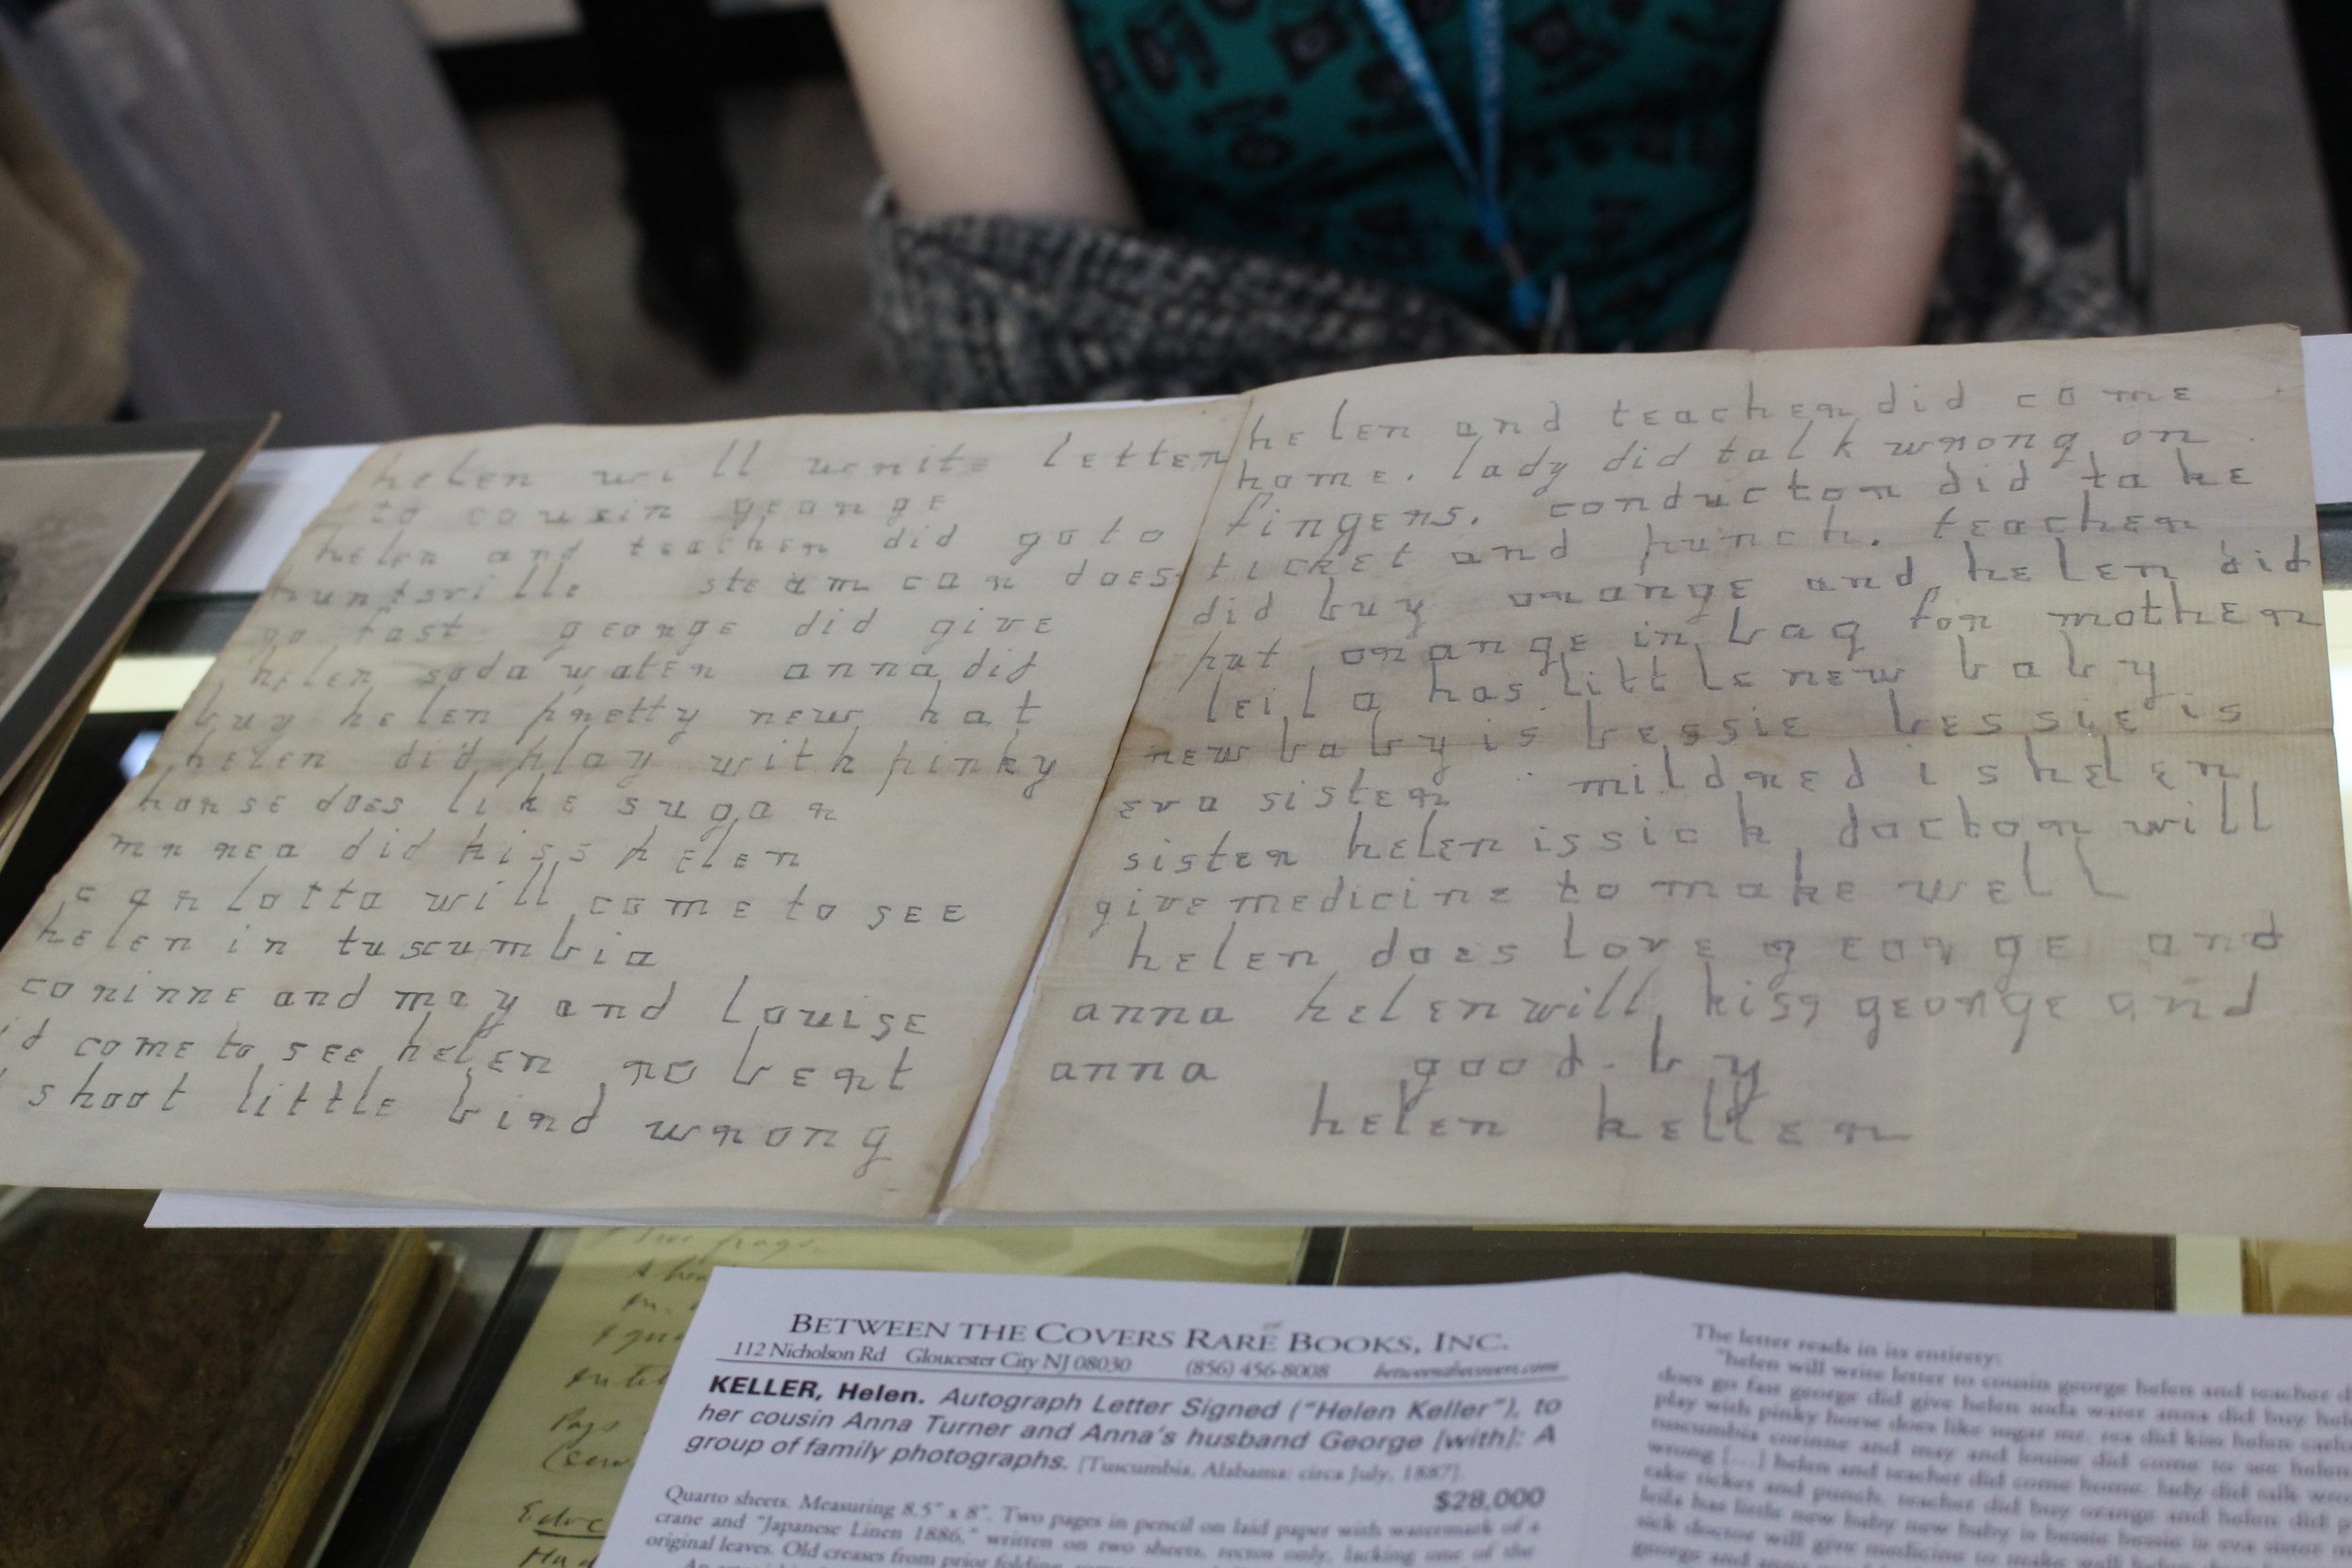 helen will write letter
to cousin george
helen and teacher did go to
huntsville steam car does
go fast george did give
helen soda water anna did
buy helen pretty new hat
helen did play with pinky
horse does like sugar
mr rea did kiss helen
carlotta will come to see
helen in tuscumbia
corinne and may and louise
did come to see helen robert
shoot little bird wrong
helen and teacher did come
home. lady did talk wrong on
fingers. conductor did take
ticket and punch. teacher
did buy orange and helen did
put orange in bag for mother
leila has little new baby
new baby is bessie bessie is
eva sister mildred is helen
sister helen is sick doctor will
give medicine to make well
helen does love george and
anna helen will kiss george and
anna good-by
helen keller
BETWEEN THE COVERS RARE BOOKS, INC.
112 Nicholson Rd Gloucester City NJ 08030 (856) 456-8008 betweenthecovers.com
KELLER, Helen. Autograph Letter Signed ("Helen Keller"), to
her cousin Anna Turner and Anna's husband George [with]: A
group of family photographs. [Tuscumbia, Alabama: circa July, 1887].
$28,000
Quarto sheets. Measuring 8.5" x 8". Two pages in pencil on laid paper with watermark of a
crane and "Japanese Linen 1886," written on two sheets, rectos only, lacking one of the
original leaves. Old creases from prior folding,
The letter reads in its entirety:
"helen will write letter to cousin george helen and teacher
does go fast george did give helen soda water anna did buy
play with pinky horse does like sugar mr. rea did kiss helen
tuscumbia corinne and may and louise did come to see helen
wrong [...] helen and teacher did come home. lady did talk
take ticket and punch. teacher did buy orange and helen did
leila has little new baby new baby is bessie bessie is eva sister
sick doctor will give medicine to make
george and